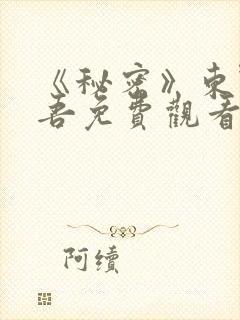 《秘密》東
吾免費觀看
阿續